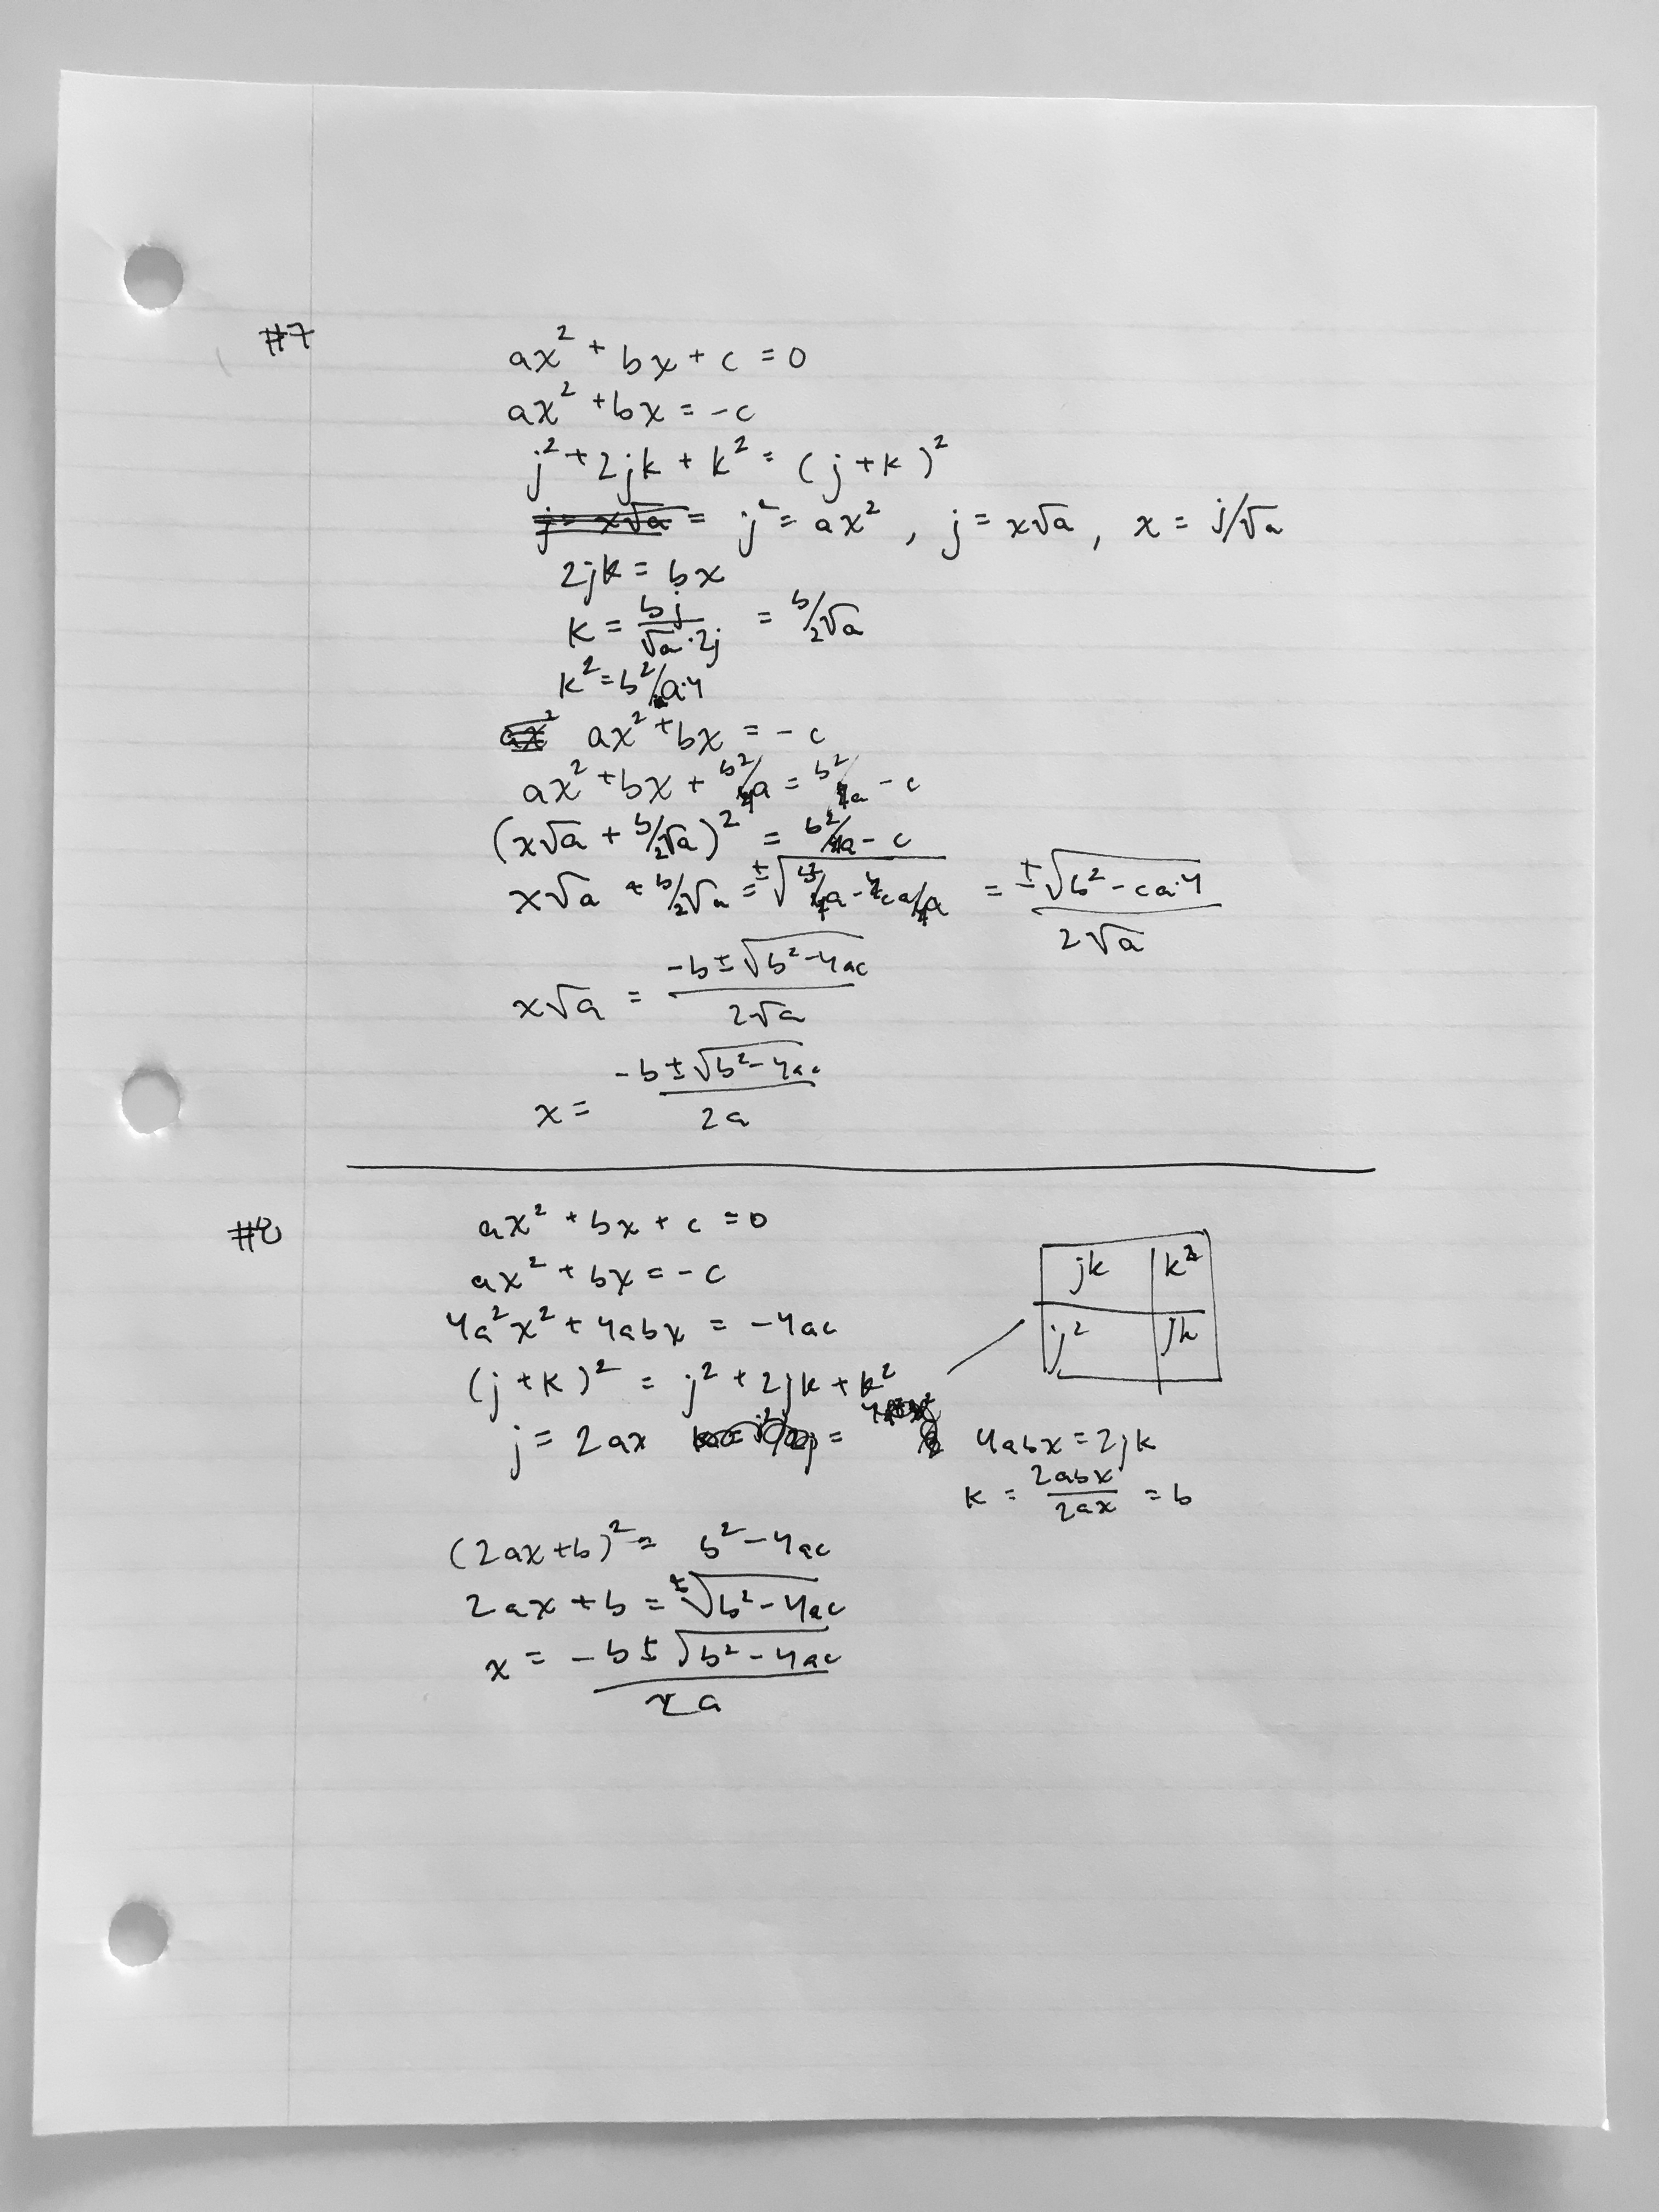 #7
ax² + bx + c = 0
ax² + bx = -c
j² + 2jk + k² = (j + k)²
j = x√a = j² = ax², j = x√a, x = j/√a
2jk = bx
k = bj/√a·2j = b/2√a
k² = b²/a·4
ax² ax² + bx = -c
ax² + bx + b²/4a = b²/4a - c
(x√a + b/2√a)² = b²/4a - c
x√a + b/2√a = ±√b²/4a - 4ca/4a = ±√b² - ca·4/2√a
x√a = -b ± √b² - 4ac/2√a
x = -b ± √b² - 4ac/2a
#8
ax² + bx + c = 0
ax² + bx = -c
4a²x² + 4abx = -4ac
(j + k)² = j² + 2jk + k²
jk k²
j² jk
j = 2ax
4abx = 2jk
k = 2abx/2ax = b
(2ax + b)² = b² - 4ac
2ax + b = ±√b² - 4ac
x = -b ± √b² - 4ac/2a